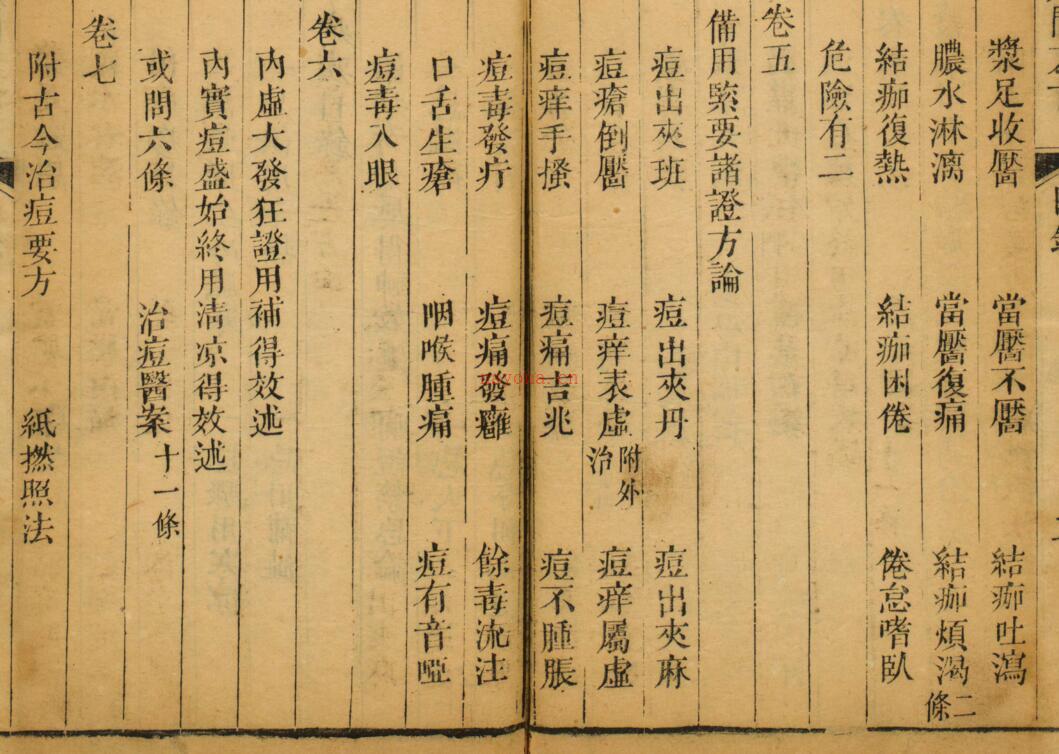 漿足收靨 當靨不靨 結痂吐瀉
膿水淋漓 當靨復痛 結痂煩渴 二條
結痂復熱 結痂困倦 倦怠嗜臥
危險有二
備用緊要諸證方論
卷五
痘出夾班 痘出夾丹 痘出夾麻
痘瘡倒靨 痘痒表虛 附外治 痘痒屬虛
痘痒手搔 痘痛吉兆 痘不腫脹
痘毒發疔 痘痛發癰 餘毒流注
口舌生瘡 咽喉腫痛 痘有音啞
痘毒入眼
卷六
內虛大發狂證用補得效述
內實痘盛始終用清凉得效述
或問六條 治痘醫案 十一條
卷七
附古今治痘要方 紙撚照法
nayona.cn